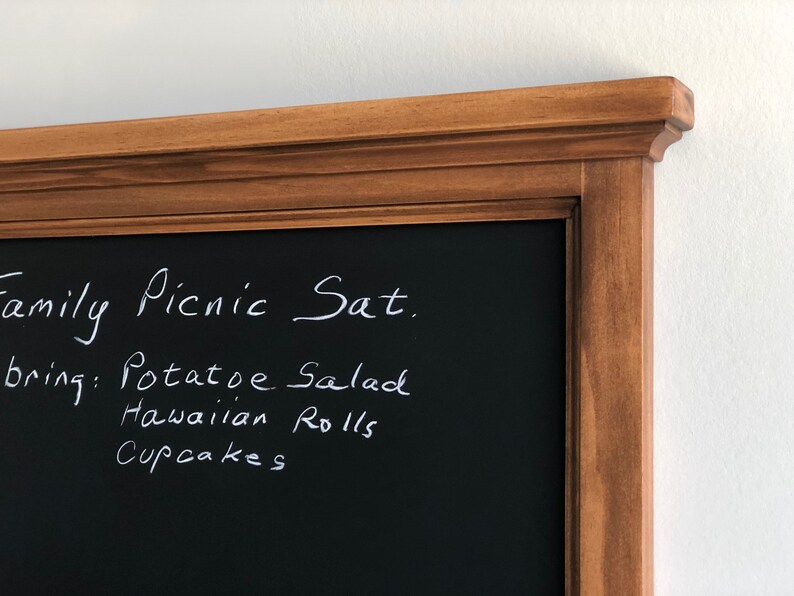 Family Picnic Sat.
bring: Potatoe Salad
Hawaiian Rolls
Cupcakes